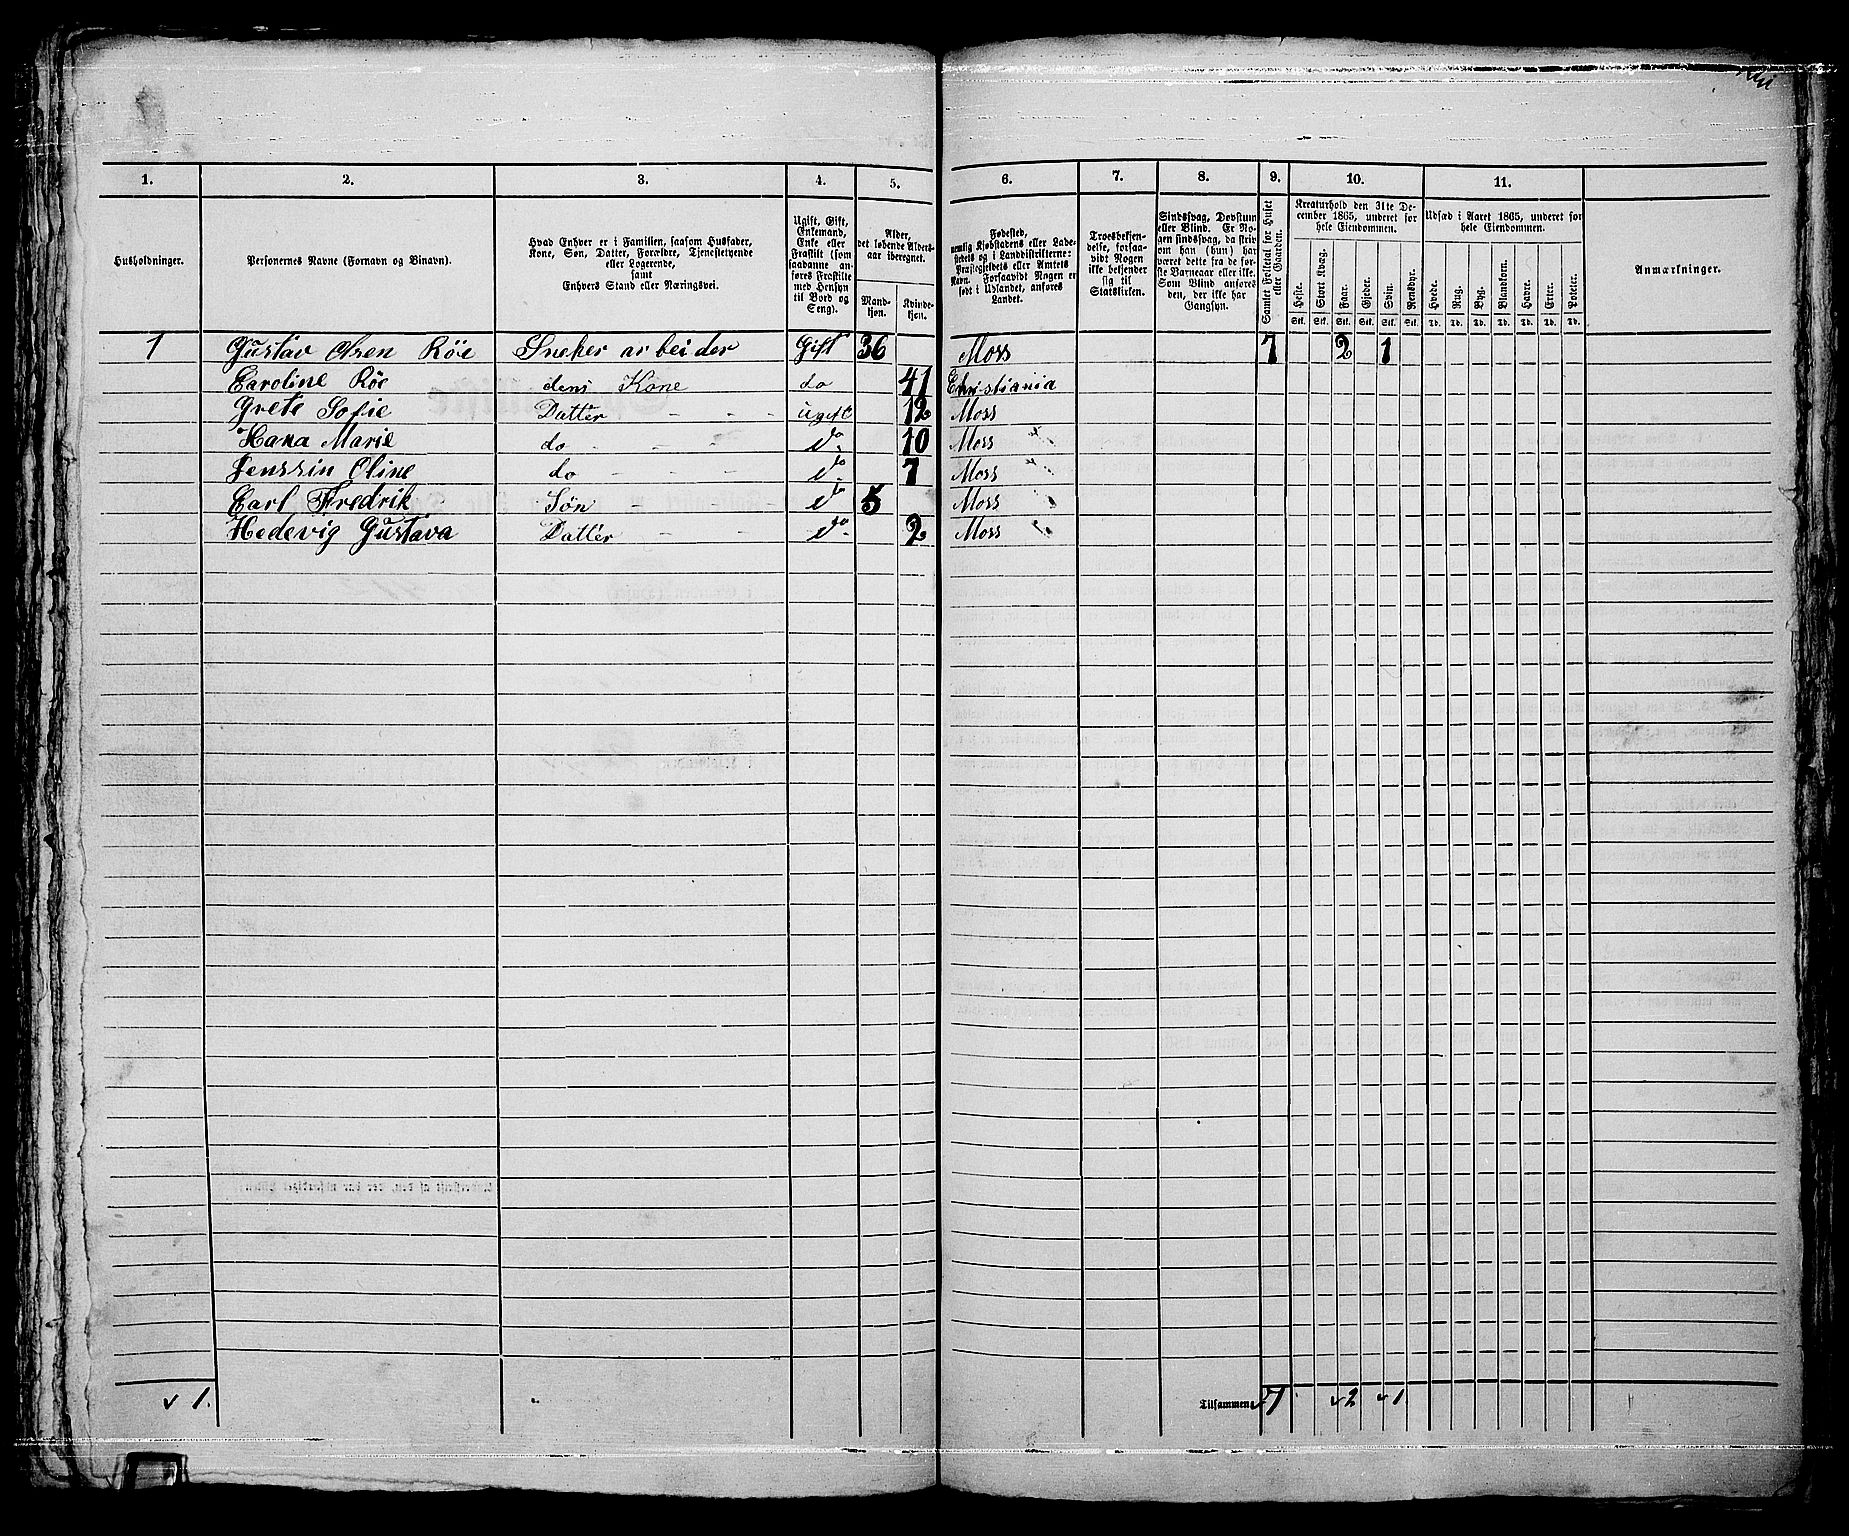 1. 2. 3. 4. 5. 6. 7. 8. 9. 10. 11.
Husholdninger.
Personernes Navne (Fornavn og Binavn).
Hvad Enhver er i Familien, saasom Husfader,
Kone, Søn, Datter, Forældre, Tjenestetyende
eller Logerende,
samt
Enhvers Stand eller Næringsvei.
Ugift, Gift,
Enkemand,
Enke eller
Fraskilt (som
saadanne an-
føres Fraskilte
med Hensyn
til Bord og
Seng).
Alder,
det løbende Alders-
aar iberegnet.
Mand-
kjøn.
Kvinde-
kjøn.
Fødested,
nemlig Kjøbstadens eller Lade-
stedets og i Landdistrikterne:
Præstegjeldets eller Amtets
Navn. Forsaavidt Nogen er
født i Udlandet, anføres
Landet.
Troesbekjen-
delse, forsaa-
vidt Nogen
ikke bekjender
sig til
Statskirken.
Sindssvag, Døvstum
eller Blind. Er No-
gen sindssvag, da skriv
om han (hun) har
været dette fra de før-
ste Barneaar eller ikke.
Som Blind anføres
den, der ikke har
Gangsyn.
Samlet Folketal for Huset
eller Gaarden.
Kreaturhold den 31te De-
cember 1865, underet for
hele Eiendommen.
Heste. Stort Kvæg. Faar. Gjeder. Svin. Rensdyr.
Stk. Stk. Stk. Stk. Stk. Stk.
Udsæd i Aaret 1865, underet for
hele Eiendommen.
Hvede. Rug. Byg. Blandkorn. Havre. Erter. Poteter.
Td. Td. Td. Td. Td. Td. Td.
Anmærkninger.
1 Gustav Olsen Röe Sneker arbeider Gift 36 Moss 7 2 1
Caroline Röe dens Kone do 41 Christiania
Grete Sofie Datter - - - ugift 12 Moss
Hana Marie do - - - do 10 Moss
Jenssin Oline do - - - do 7 Moss
Carl Fredrik Søn - - - do 5 Moss
Hedevig Gustava Datter - - do 2 Moss
v 1. Tilsammen v7 v2 v1